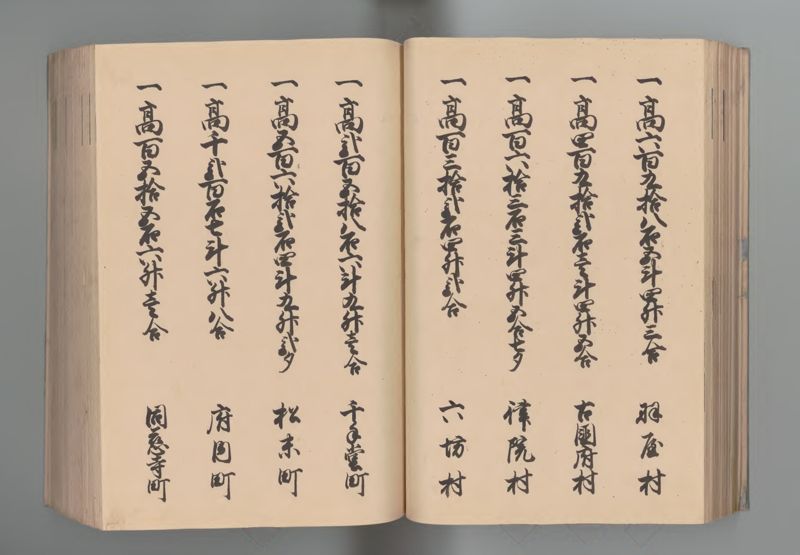 一高六百九拾八石五斗四升三合 羽屋村
一高四百九拾弐石壱斗四升五合 古國府村
一高百六拾三石三斗四升五合七夕 律院村
一高百三拾弐石四升弐合 六坊村
一高弐百五拾八石六斗九升壱合 千手堂町
一高五百六拾弐石四斗九升弐夕 松末町
一高千弐百石七斗六升八合 府内町
一高百五拾五石六升壱合 同慈寺町